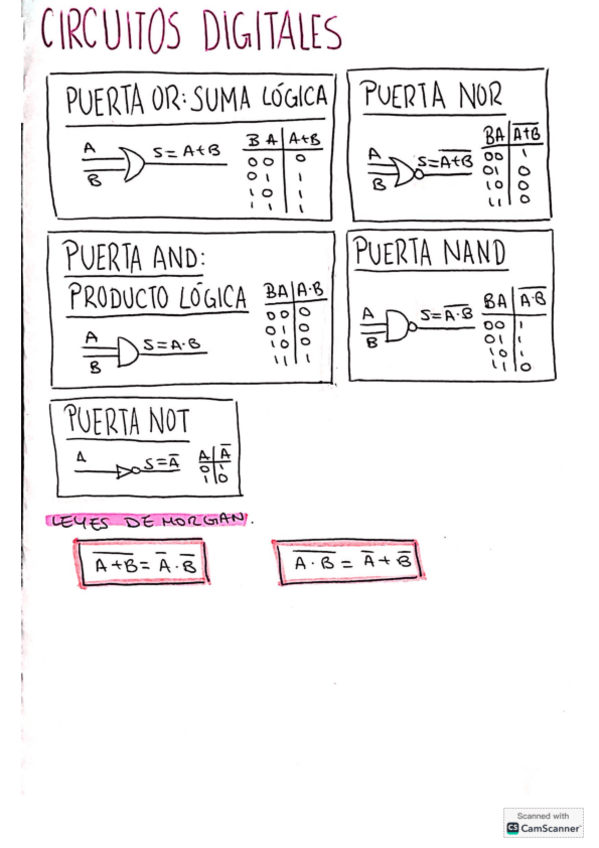 CIRCUITOS DIGITALES
PUERTA OR: SUMA LÓGICA
A
B
S = A+B
B A | A+B
0 0 | 0
0 1 | 1
1 0 | 1
1 1 | 1
PUERTA NOR
A
B
S = A̅+̅B̅
BA | A̅+̅B̅
00 | 1
01 | 0
10 | 0
11 | 0
PUERTA AND:
PRODUCTO LÓGICA
A
B
S = A·B
BA | A·B
00 | 0
01 | 0
10 | 0
11 | 1
PUERTA NAND
A
B
S = A̅·̅B̅
BA | A̅·̅B̅
00 | 1
01 | 1
10 | 1
11 | 0
PUERTA NOT
A
S = A̅
A | A̅
0 | 1
1 | 0
LEYES DE MORGAN.
A̅+̅B̅ = A̅ · B̅
A̅·̅B̅ = A̅ + B̅
Scanned with
CS CamScanner